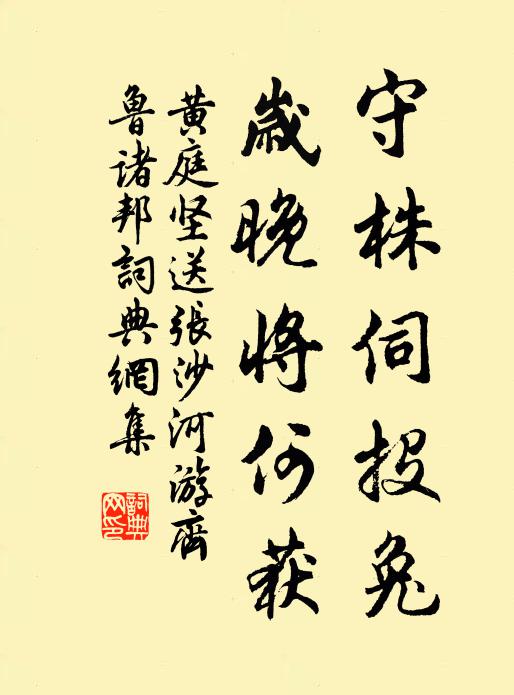 守株伺投兔
歲晚将何获
黄庭坚送張沙河游齊
魯诸邦詞典網集
詞典
网印